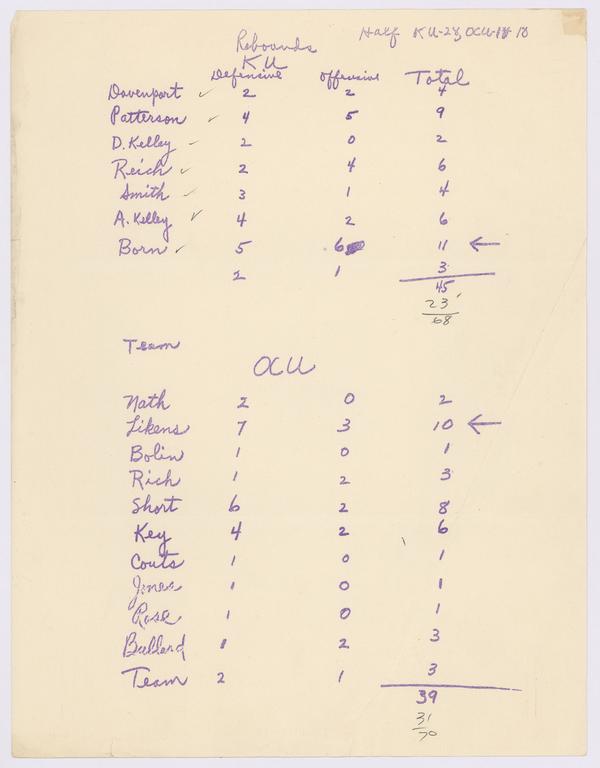 Half KU-28, OCU-18
Rebounds
KU
Defensive Offensive Total
Davenport ✓ 2 2 4
Patterson ✓ 4 5 9
D. Kelley ✓ 2 0 2
Reich ✓ 2 4 6
Smith ✓ 3 1 4
A. Kelley ✓ 4 2 6
Born ✓ 5 6 11 ←
2 1 3
45
23
68
Team
OCU
Nath 2 0 2
Likens 7 3 10 ←
Bolin 1 0 1
Rich 1 2 3
Short 6 2 8
Key 4 2 6
Couts 1 0 1
Jones 1 0 1
Rose 1 0 1
Bullard 1 2 3
Team 2 1 3
39
31
70